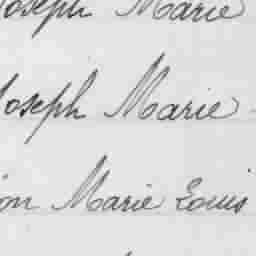 Joseph Marie
Joseph Marie
Marie Louis